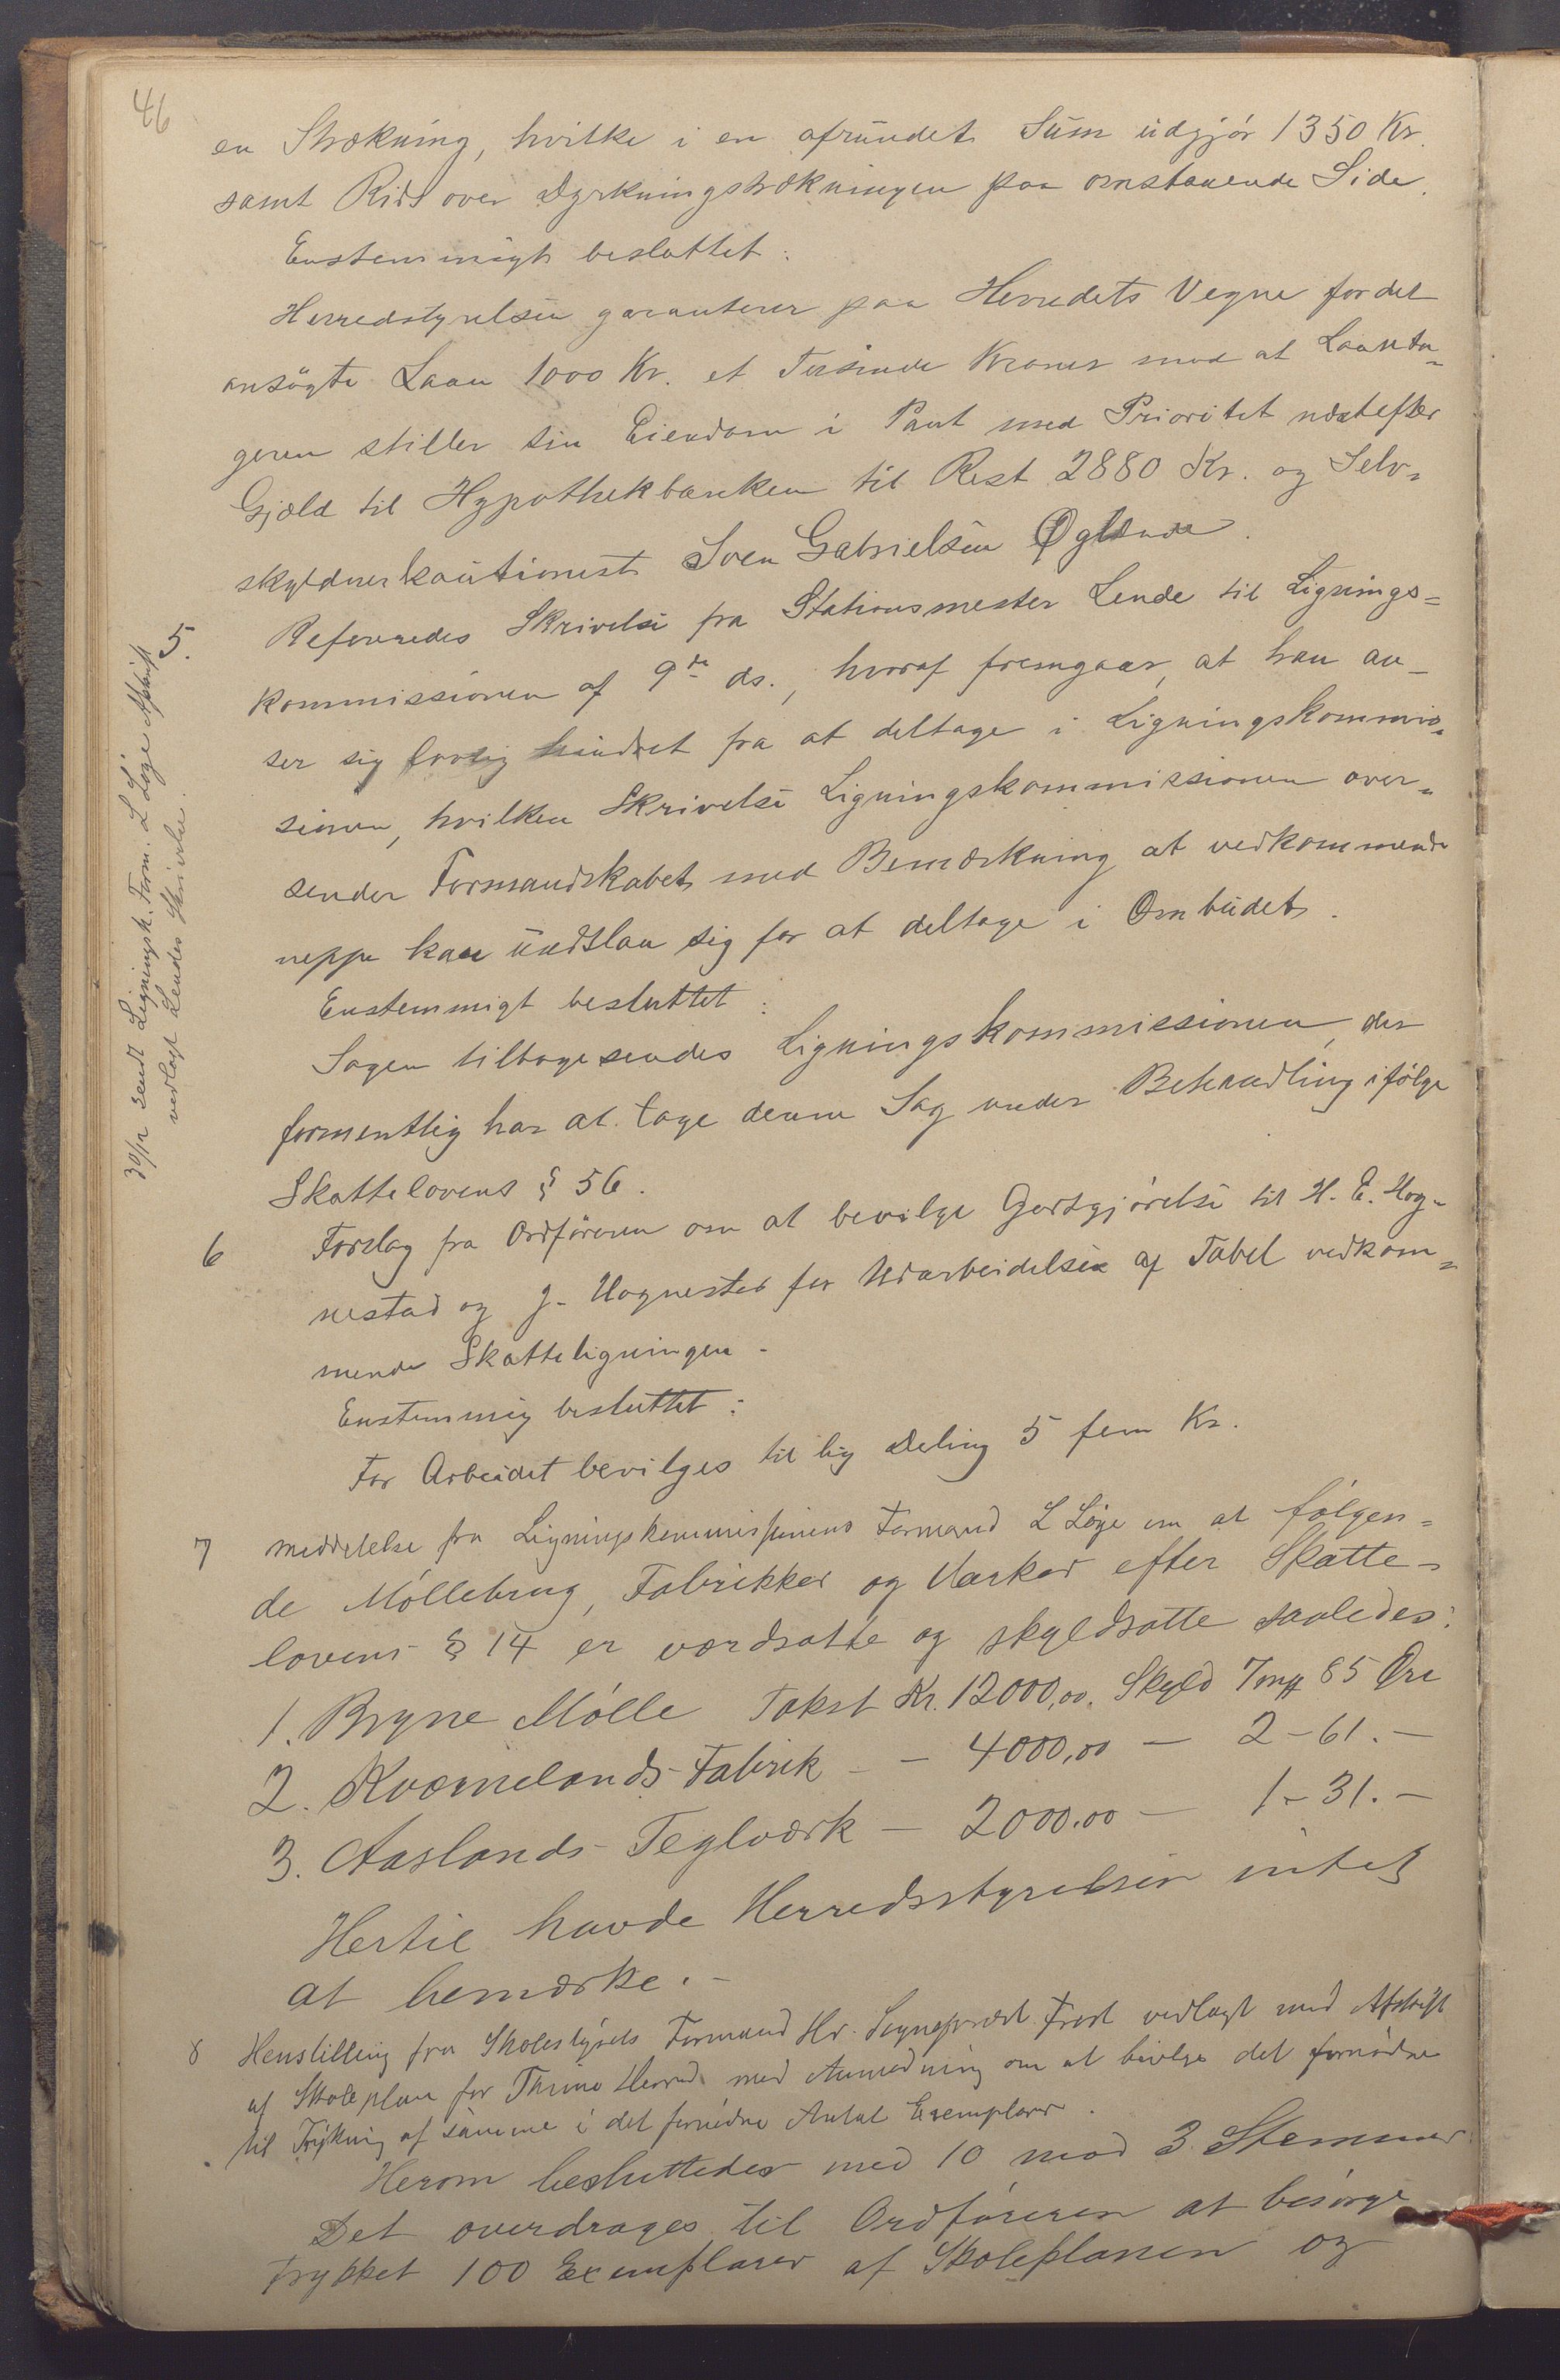 46
en Strækning, hvilke i en afrundet Sum udgjør 1350 Kr.
samt Rids over Dyrkningstrækningen paa omstaaende Side.
Enstemmigt besluttet:
Herredstyrelsen garanterer paa Herredets Vegne for det
ansøgte Laan 1000 Kr. et Tusinde Kroner mod at Laanta-
geren stiller sin Eiendom i Pant med Prioritet næstefter
Gjæld til Hypothekbanken til Rest 2880 Kr. og Selv-
skyldnerkautionist Sven Gabrielsen Øglænde.
5. Refereredes Skrivelse fra Stationsmester Lende til Lignings=
kommissionen af 9de ds., hvoraf fremgaar, at han an-
ser sig lovlig hindret fra at deltage i Ligningskommis-
sionen, hvilken Skrivelse Ligningskommissionen over-
sender Formandskabet med Bemærkning at vedkommende
neppe kan undslaa sig for at deltage i Ombudet.
Enstemmigt besluttet:
Sagen tilbagesendes Ligningskommissionen, der
formentlig har at tage denne Sag under Behandling ifølge
Skattelovens § 56.
30/12 sendt Ligningsk. Form. L Løge Afskrift
vedlagt Lendes Skrivelse.
6 Forslag fra Ordføreren om at bevilge Godtgjørelse til H. E. Hog-
nestad og J. Hognestad for Udarbeidelsen af Tabel vedkom-
mende Skatteligningen.
Enstemmig besluttet:
For Arbeidet bevilges til lig Deling 5 fem Kr.
7 meddelelse fra Ligningskommissionens Formand L Løge om at følgen=
de Møllebrug, Fabrikker og Værker efter Skatte-
lovens § 14 er værdsatte og skyldsatte saaledes:
1. Bryne Mølle Takst Kr. 12000,00. Skyld 7 mk 85 Øre
2. Kværnelands-Fabrik - - 4000,00 - 2-61.-
3. Aaslands-Teglværk - 2000.00 - 1-31.-
Hertil havde Herredsstyrelsen intet
at bemærke.-
8 Henstilling fra Skolestyrets Formand Hr. Sogneprest Frost vedlagt med Afskrift
af Skoleplan for Thime Herred med Anmodning om at bevilge det fornødne
til Trykning af samme i det fornødne Antal Exemplarer.
Herom besluttedes med 10 mod 3 Stemmer
Det overdrages til Ordføreren at besørge
trykket 100 Exemplarer af Skoleplanen og